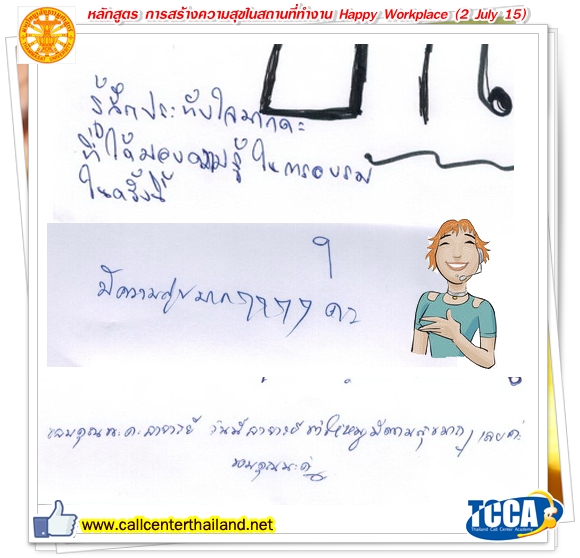 หลักสูตร การสร้างความสุขในสถานที่ทำงาน Happy Workplace (2 July 15)
รู้สึกประทับใจมากคะ
ที่ได้มอบความรู้ในการอบรม
ในครั้งนี้
มีความสุขมากๆๆๆๆ คะ
ขอบคุณนะคะอาจารย์ วันนี้อาจารย์ทำให้หนูมีความสุขมากๆ เลยค่ะ
ขอบคุณนะค่ะ
www.callcenterthailand.net
TCCA
Thailand Call Center Academy